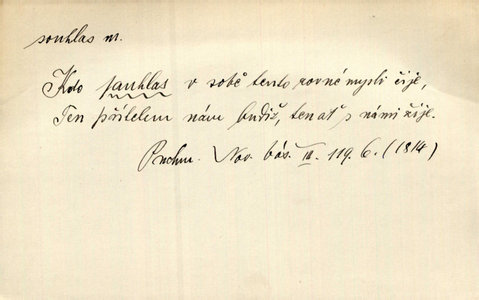 souhlas m.
Kdo souhlas v sobě tento rovné mysli čije,
Ten přítelem nám budiž, tenať s námi žije.
Puchm. Nov. bás. III. 119. 6. (1814)